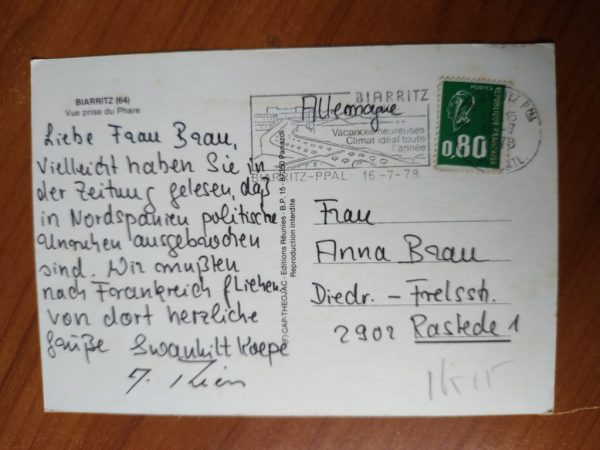 BIARRITZ (64)
Vue prise du Phare
Liebe Frau Brau,
vielleicht haben Sie in
der Zeitung gelesen, daß
in Nordspanien politische
Unruhen ausgebrochen
sind. Wir mußten
nach Frankreich fliehen
von dort herzliche
Grüße Swanhilt Koepe
(F) CAP-THEOJAC - Editions Réunies - B.P. 15 - 87350 Panazol
Reproduction interdite
BIARRITZ
Allemagne
Vacances heureuses
Climat idéal toute
l'année
BIARRITZ-PPAL 16-7-78
POSTES
REPUBLIQUE FRANÇAISE
0,80
Frau
Anna Brau
Diedr. - Frelsstr.
2902 Rastede 1